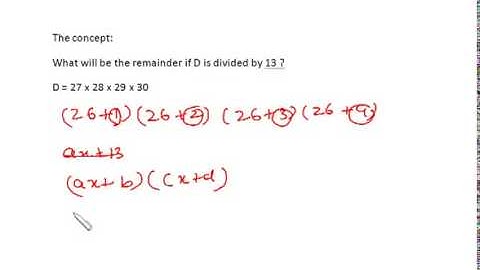 The concept:
What will be the remainder if D is divided by 13 ?
D = 27 x 28 x 29 x 30
(26+1) (26+2) (26+3) (26+4)
ax+13
(ax+b) (cx+d)